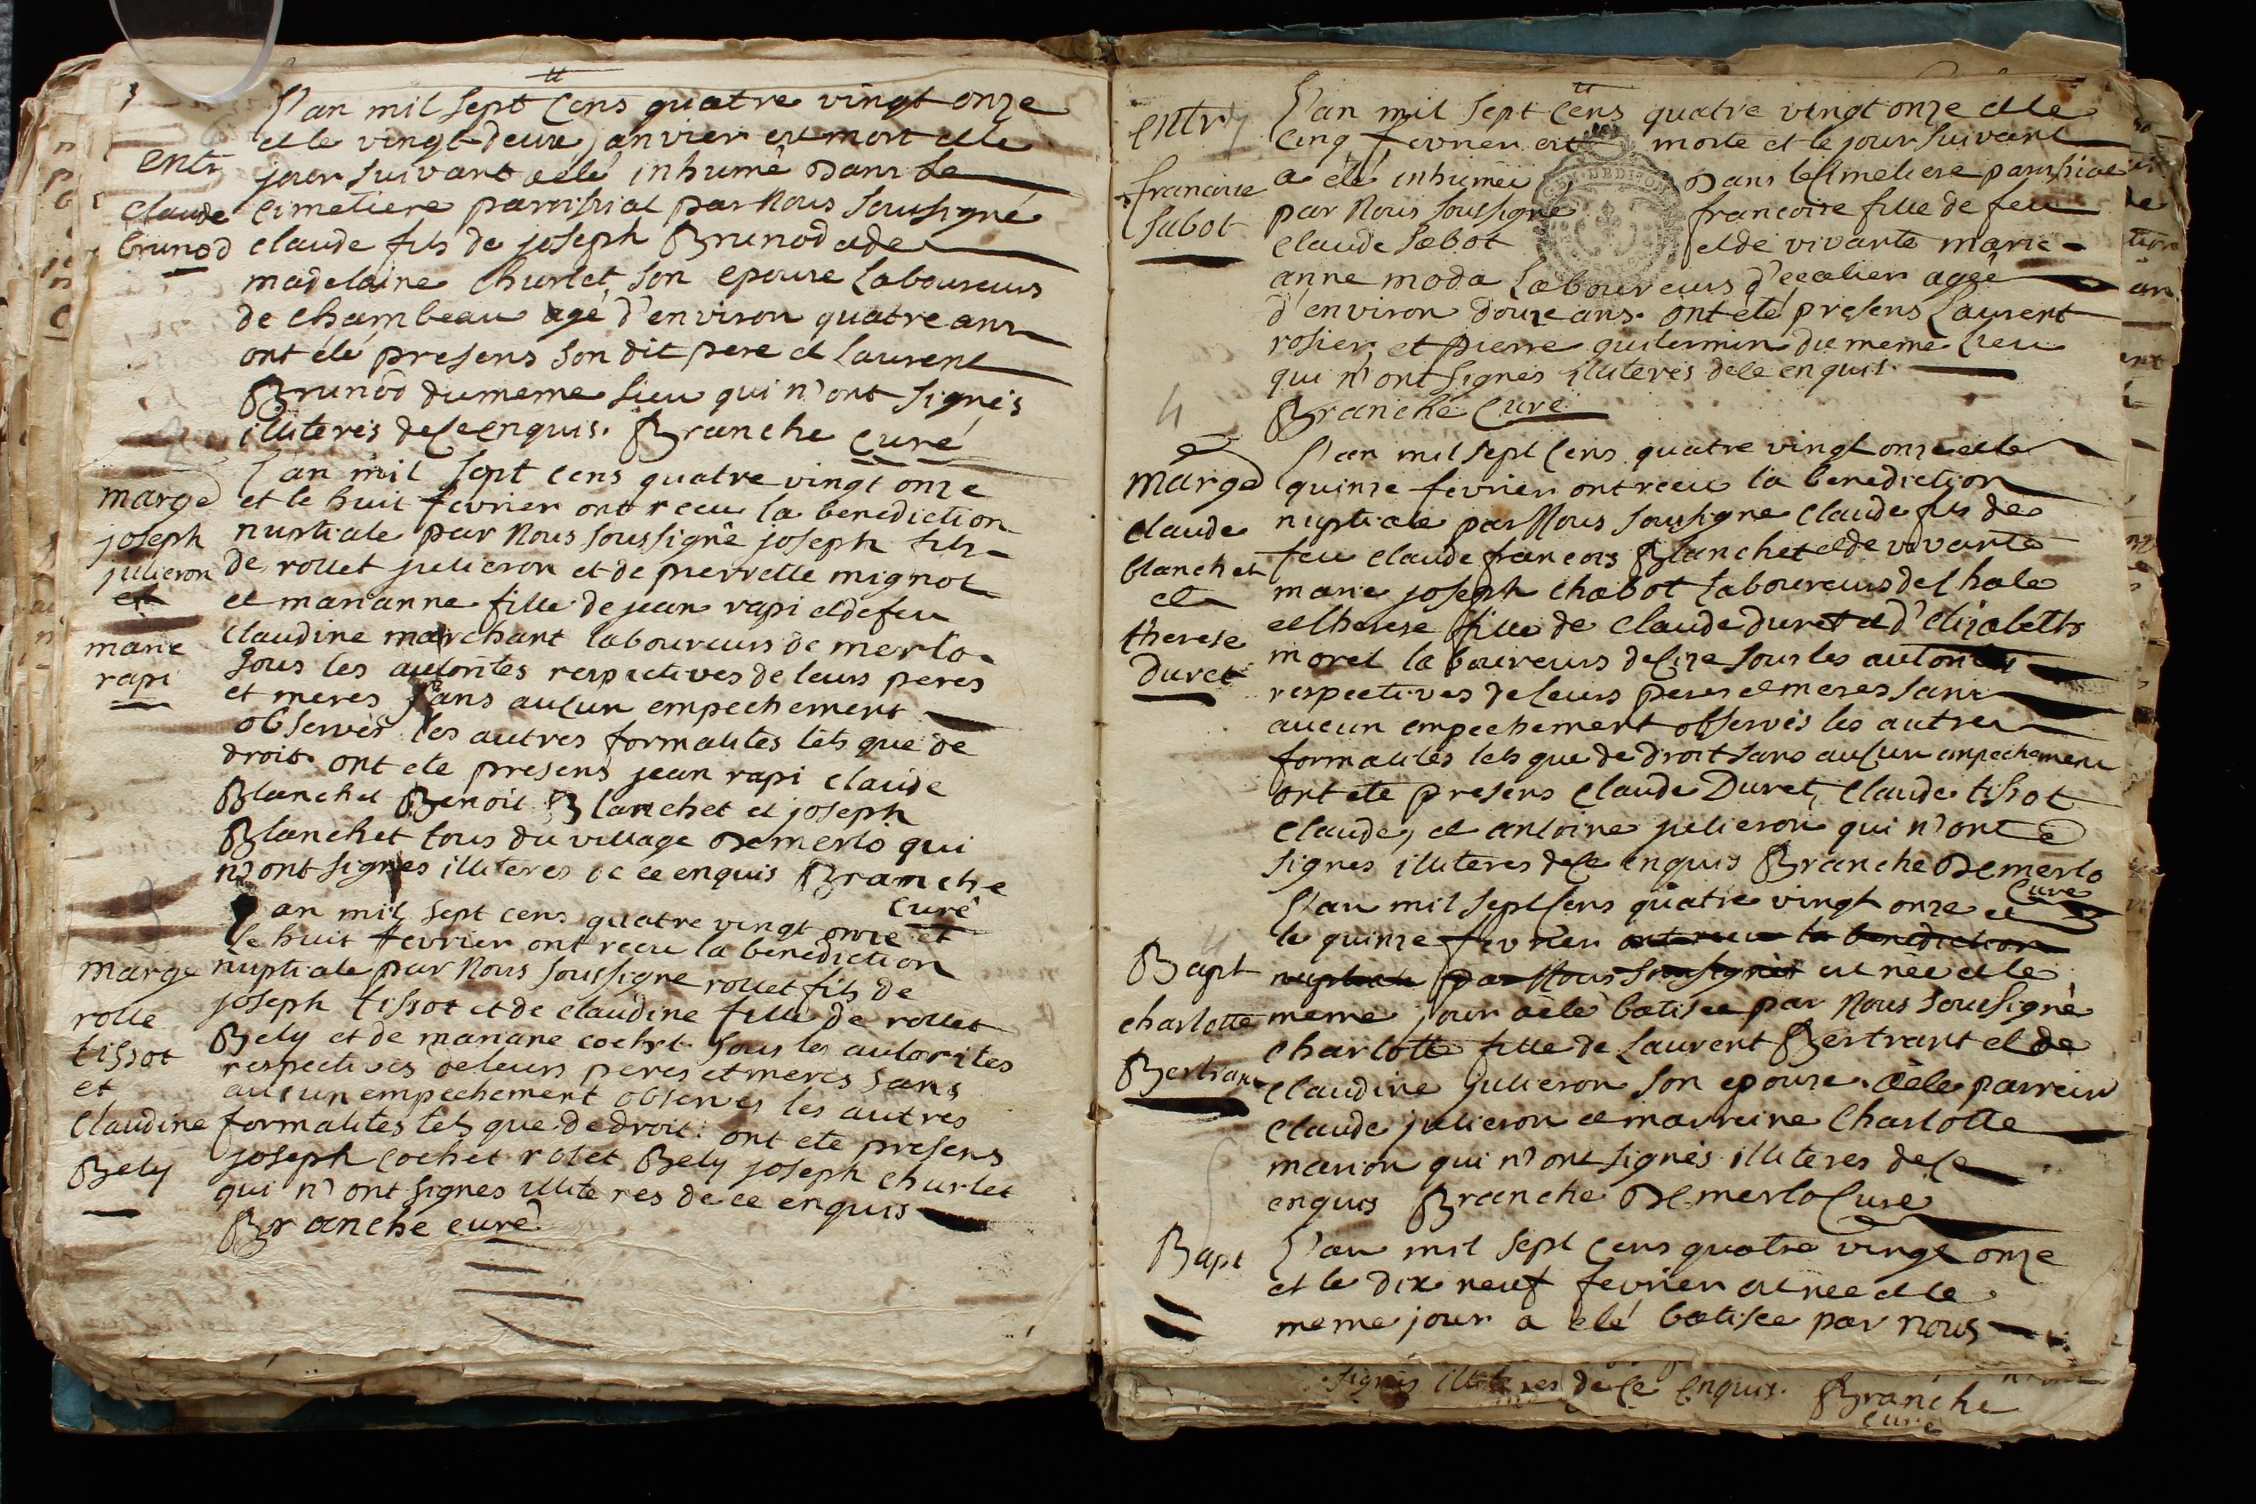 L'an mil sept cens quatre vingt onze
et le vingt deux janvier est mort et le
entr
jour suivant a eté inhumé dans le
claude
cimetiere parroissial par Nous soussigné
brunod
claude fils de joseph Brunod et de
madelaine churlet son epouse Laboureurs
de chambeau agé d'environ quatre ans
ont été presens son dit pere et laurent
Brunod du meme lieu qui n'ont signés
illiterés de ce enquis. Branche curé
L'an mil sept cens quatre vingt onze
marge
et le huit fevrier ont recu la benediction
joseph
nuptiale par Nous soussigné joseph fils
julieron
de rollet julieron et de pierrette mignot
et
et marianne fille de jean rapi et de feu
marie
claudine marchant laboureurs de merlo
rapi
sous les autorités respectives de leurs peres
et meres sans aucun empechement
observés les autres formalités tels que de
droit ont eté presens jean rapi claude
Blanchet Benoit Blanchet et joseph
Blanchet tous du village de merlo qui
n'ont signes illiteres de ce enquis Branche
curé
L'an mil sept cens quatre vingt onze et
le huit fevrier ont recu la benediction
marge
nuptiale par Nous soussigne rollet fils de
rolle
joseph tissot et de claudine fille de rollet
tissot
Bely et de mariane cochet sous les autorites
et
respectives de leurs peres et meres sans
aucun empechement observes les autres
claudine
formalites tels que de droit. ont ete presens
Bely
joseph cochet rolet Bely joseph churlet
qui n'ont signes illiteres de ce enquis
Branche curé
entr
L'an mil sept cens quatre vingt onze et le
cinq fevrier est morte et le jour suivant
francoise
a eté inhumée dans le Cimetiere parrissial
sabot
par Nous soussigné francoise fille de feu
claude sabot et de vivante marie
anne moda Laboureurs d' agée
d'environ douze ans. ont été presens Laurent
rosier et pierre guilermin du meme lieu
qui n'ont signés illiterés de ce enquis
4
Branche Curé
L'an mil sept cens quatre vingt onze et le
marge
quinze fevrier ont recu la benediction
claude
nuptiale par Nous sousigne claude fils de
blanchet
feu claude francois Blanchet et de vivante
et
marie joseph chabot Laboureurs de
therese
et therese fille de claude duret et d'elizabeth
Duret
morel laboureurs de sous les autorités
respectives de leurs peres et meres sans
aucun empechement observés les autres
formalités tels que de droit sans aucun empechement
ont eté presens claude Duret, claude tissot
claude, et antoine julieron qui n'ont
signes illiteres de ce enquis Branche de merlo
Curé
L'an mil sept cens quatre vingt onze et
le quinze fevrier ont recu la benediction
Bapt
nuptiale par Nous sousigné est née et le
charlotte
meme jour a eté batisee par Nous sousigné
charlotte fille de Laurent Bertrant et de
Bertrant
claudine julieron son epouse. a eté parrein
claude julieron et marreine charlotte
marion qui n'ont signés illiteres de ce
enquis Branche de merlo Curé
Bapt
L'an mil sept cens quatre vingt onze
et le dix neuf fevrier est née et le
meme jour a eté batisée par nous
signés illiteres de ce enquis. Branche
curé